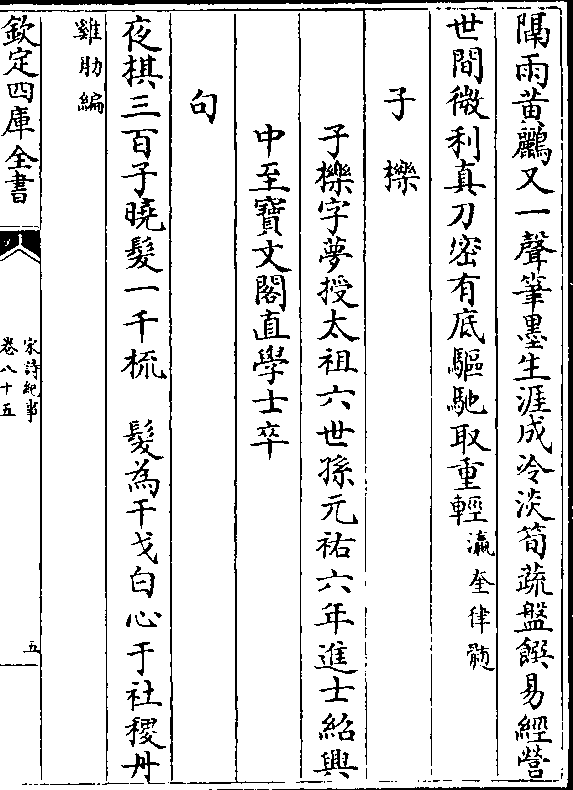 隔雨黄鸝又一聲筆墨生涯成冷淡筍蔬盤饌易經營
世間微利真刀密有底驅馳取重輕瀛奎律髓
子櫟
子櫟字夢授太祖六世孫元祐六年進士紹興
中至寶文閣直學士卒
句
夜棋三百子曉髮一千梳　髮為干戈白心于社稷丹
雞肋編
欽定四庫全書
宋詩紀事
卷八十五
五